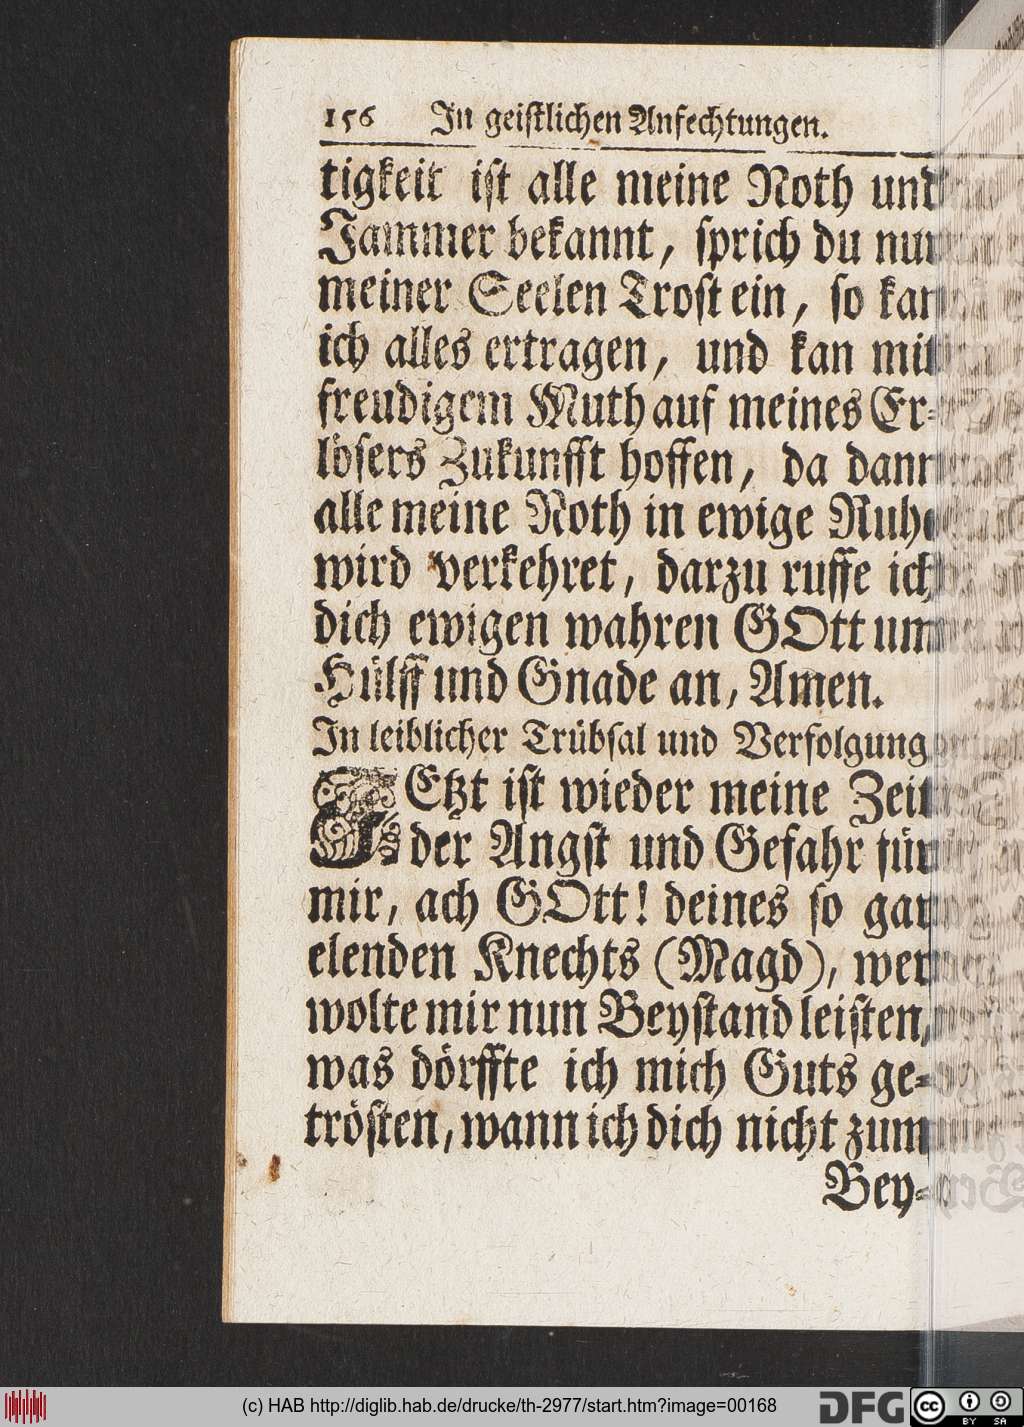 156 In geistlichen Anfechtungen.
tigkeit ist alle meine Noth und
Jammer bekannt, sprich du nur
meiner Seelen Trost ein, so kan
ich alles ertragen, und kan mit
freudigem Muth auf meines Er-
lösers Zukunfft hoffen, da dann
alle meine Noth in ewige Ruhe
wird verkehret, darzu ruffe ich
dich ewigen wahren GOtt um
Hülff und Gnade an, Amen.
In leiblicher Trübsal und Verfolgung
JEtzt ist wieder meine Zeit
der Angst und Gefahr für
mir, ach GOtt! deines so gar
elenden Knechts (Magd), wer
wolte mir nun Beystand leisten,
was dörffte ich mich Guts ge-
trösten, wann ich dich nicht zum
Bey-
(c) HAB http://diglib.hab.de/drucke/th-2977/start.htm?image=00168
DFG
cc BY SA